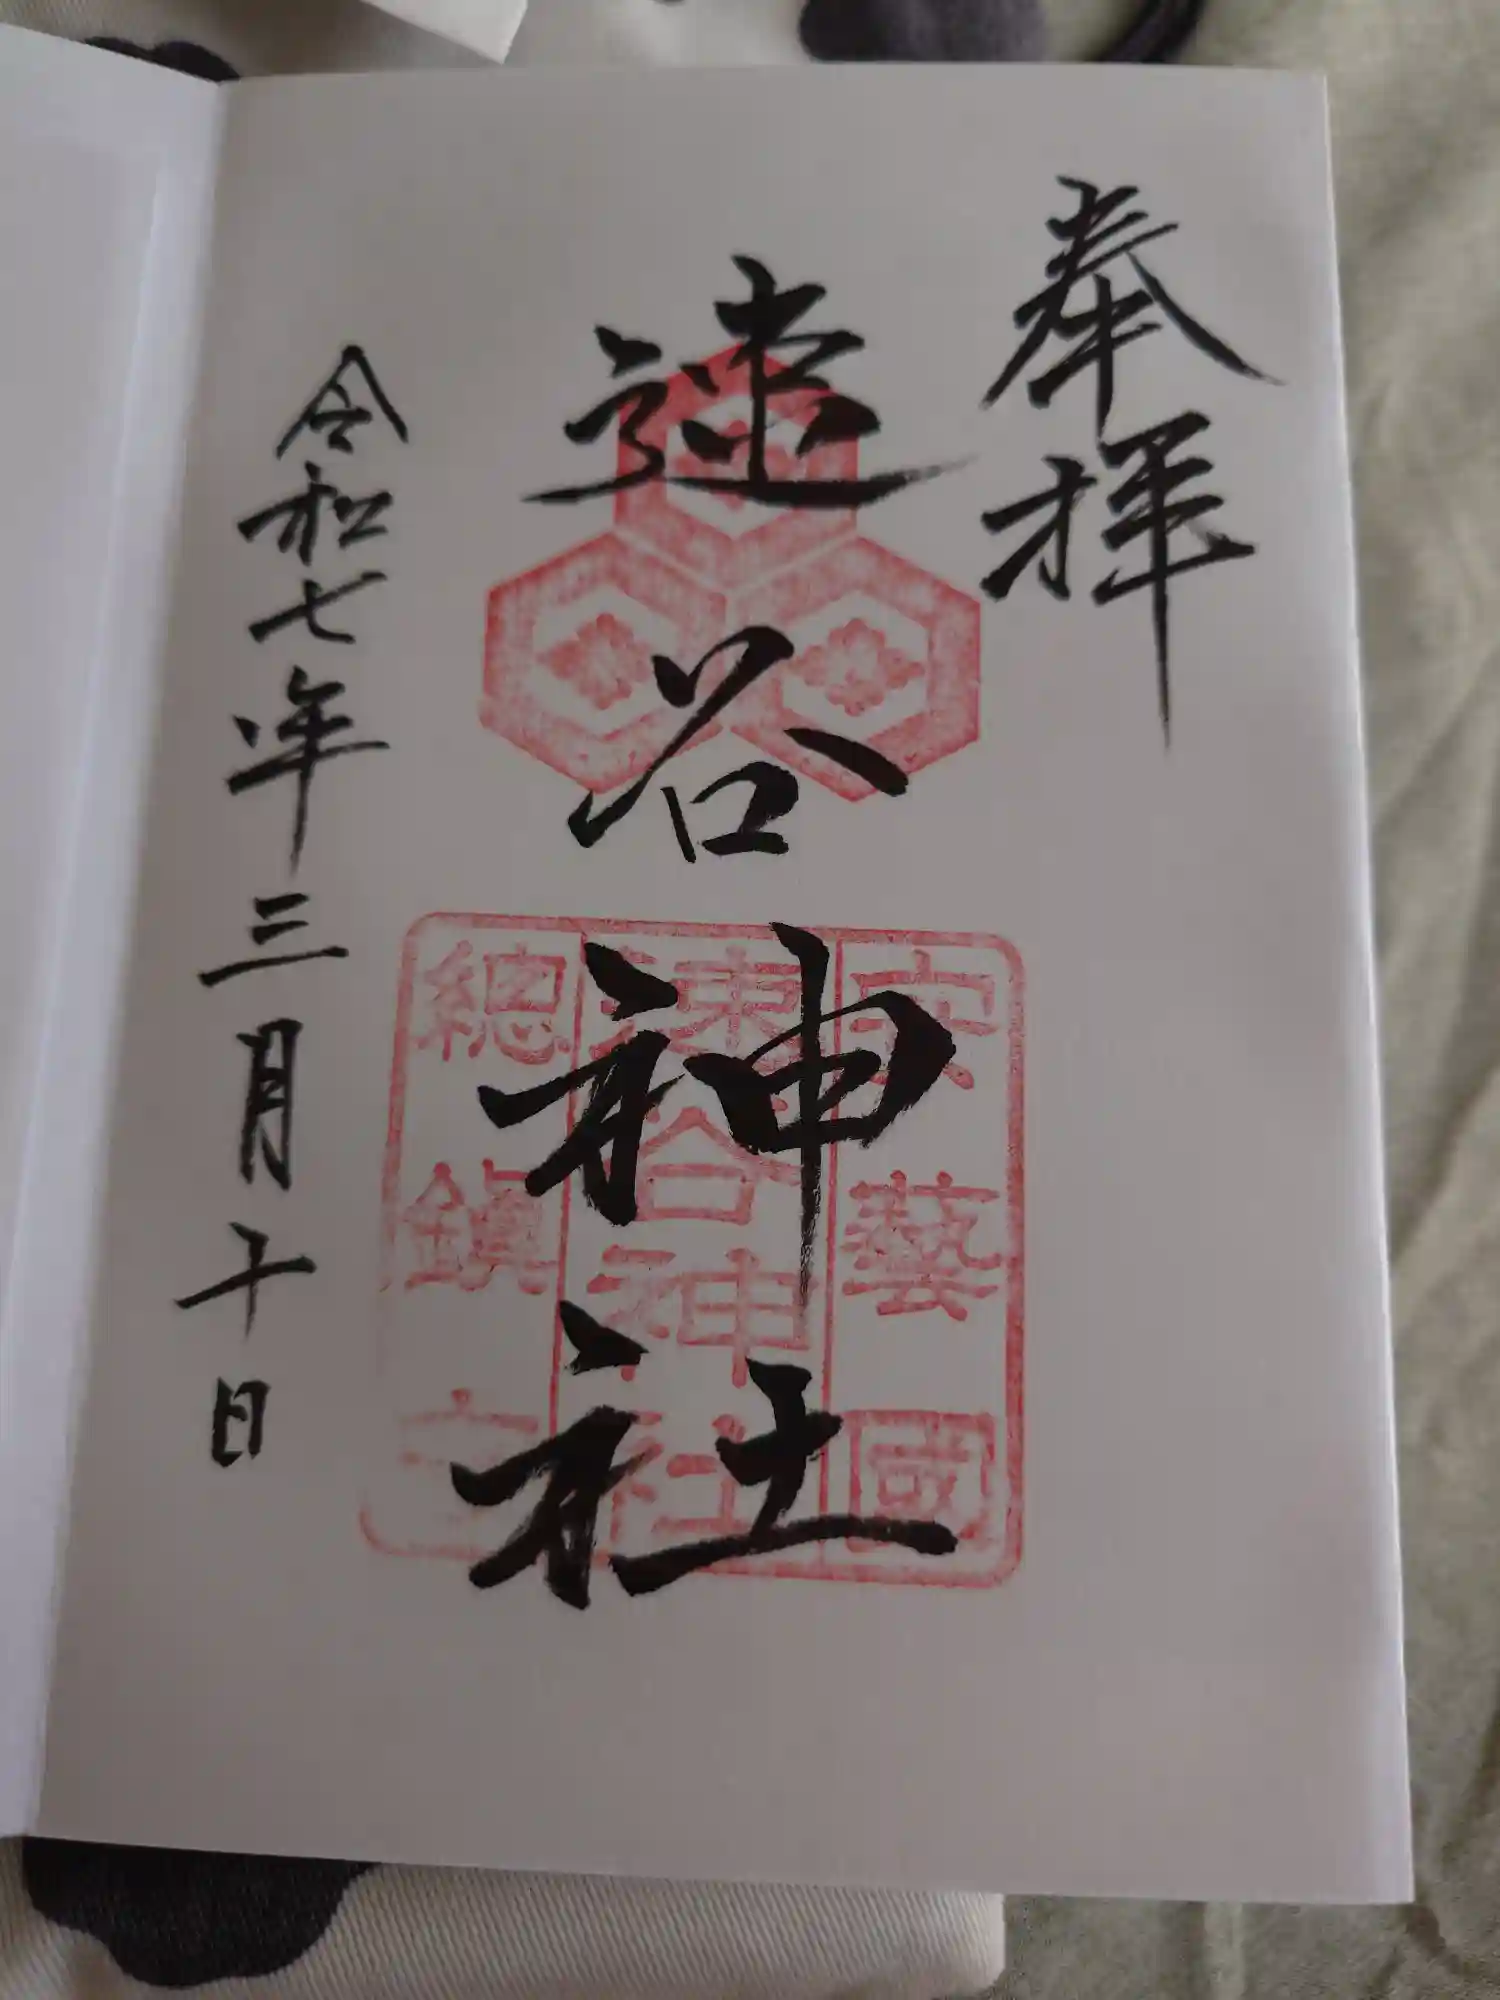 奉拝
速谷神社
安藝國
速谷神社
總鎮守
令和七年三月十日